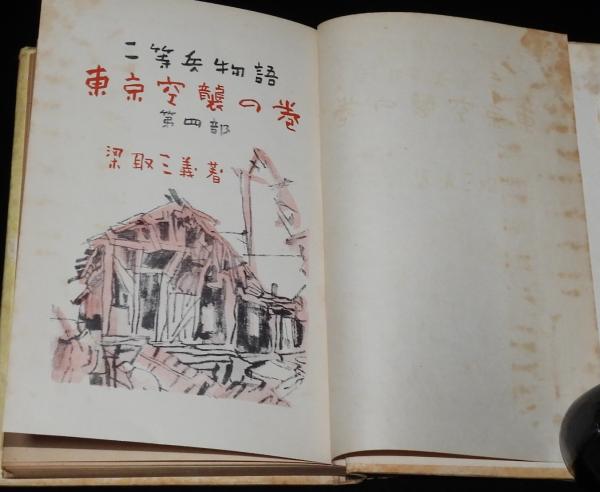 二等兵物語
東京空襲の巻
第四部
梁取三義著